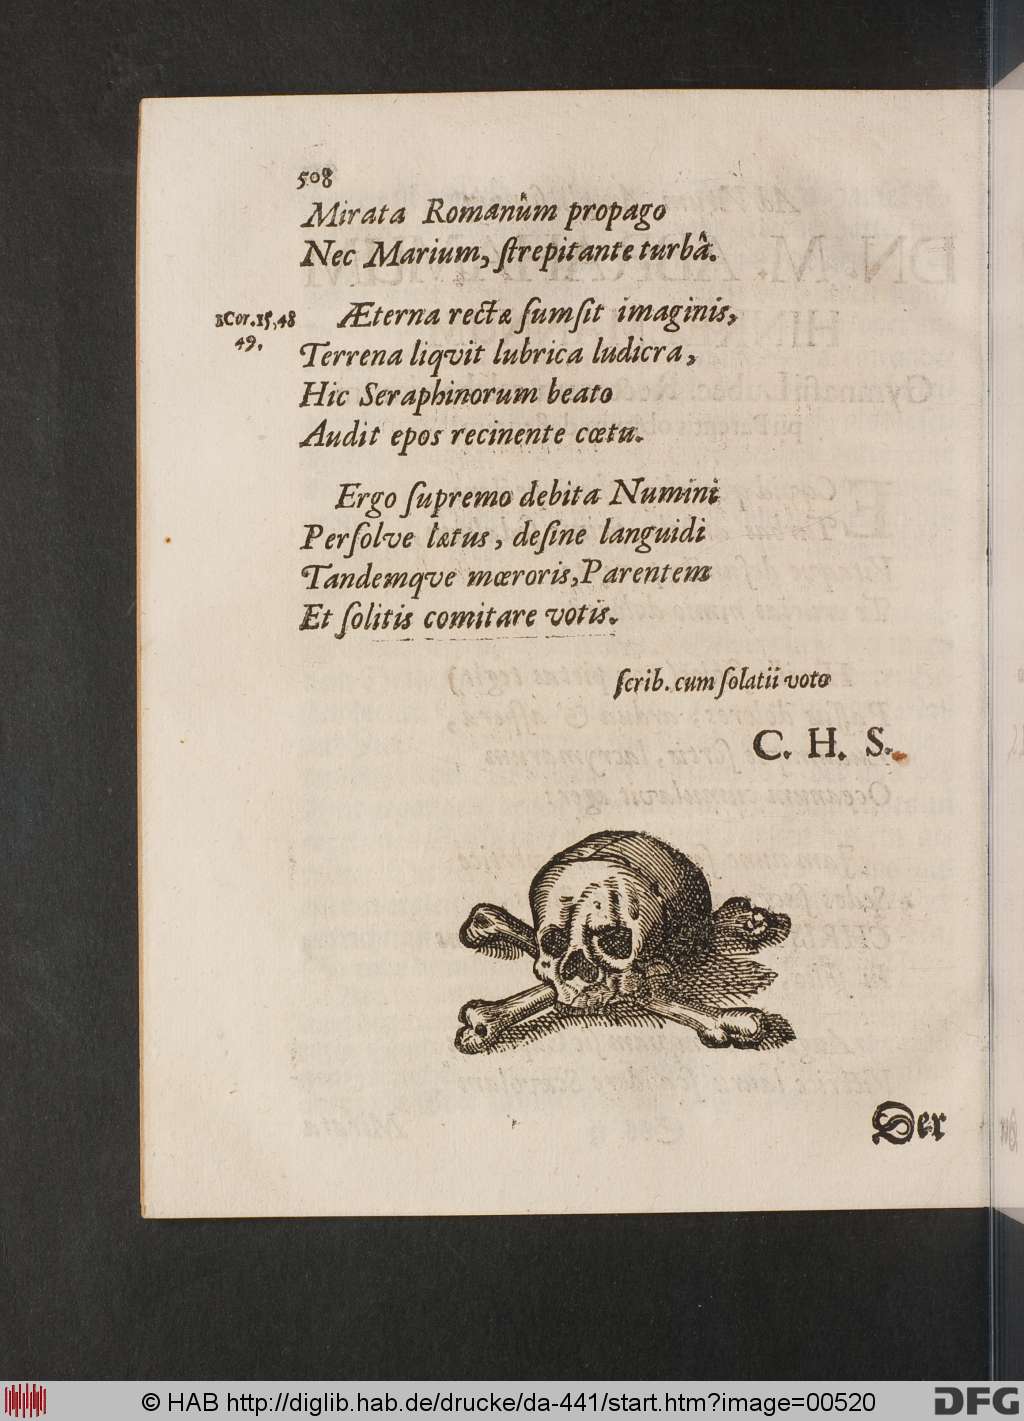 508
Mirata Romanûm propago
Nec Marium, ſtrepitante turbâ.
1 Cor. 15, 48
49.
Æterna rectæ ſumſit imaginis,
Terrena liqvit lubrica ludicra,
Hic Seraphinorum beato
Audit epos recinente cœtu.
Ergo ſupremo debita Numini
Perſolve lætus, deſine languidi
Tandemqve mœroris, Parentem
Et ſolitis comitare votis.
ſcrib. cum ſolatii voto
C. H. S.
Der
© HAB http://diglib.hab.de/drucke/da-441/start.htm?image=00520
DFG